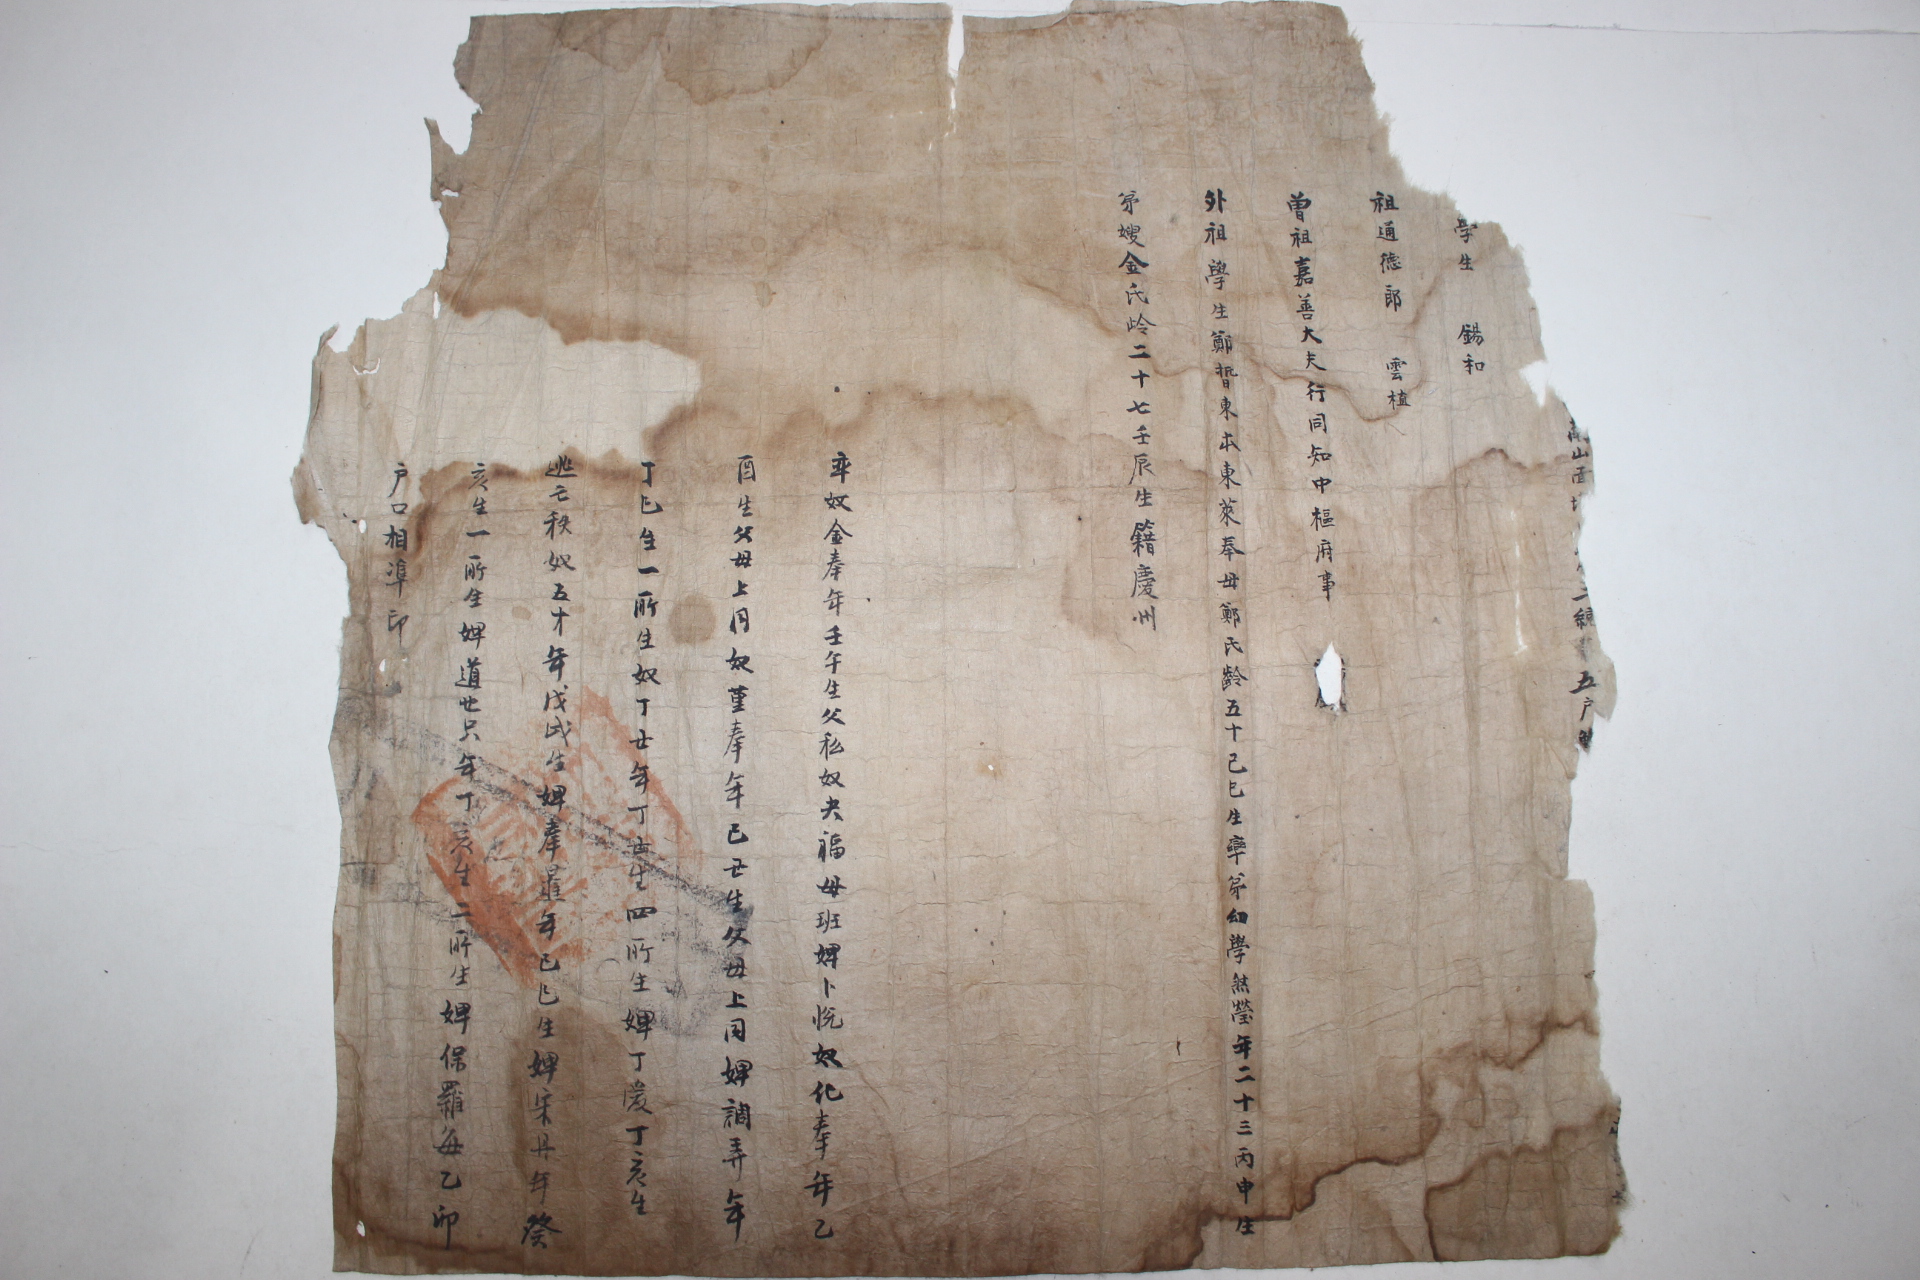 五戶
學生 錫和
祖通德郎 雲植
曾祖嘉善大夫行同知中樞府事
外祖學生鄭 東本東萊奉母鄭氏齡五十己巳生率弟幼學 年二十三丙申生
弟嫂金氏齡二十七壬辰生籍慶州
率奴金奉年壬午生父私奴夫福母班婢卜悅奴化奉年乙
酉生父母上同奴堇奉年己丑生父母上同婢調弄年
丁巳生一所生奴丁丑年丁丑生四所生婢丁愛丁亥生
逃亡秩奴五才年戊戌生婢奉 年己巳生婢宋丹年癸
亥生一所生婢道世只年丁亥生二所生婢保羅每乙卯
戶口相準印